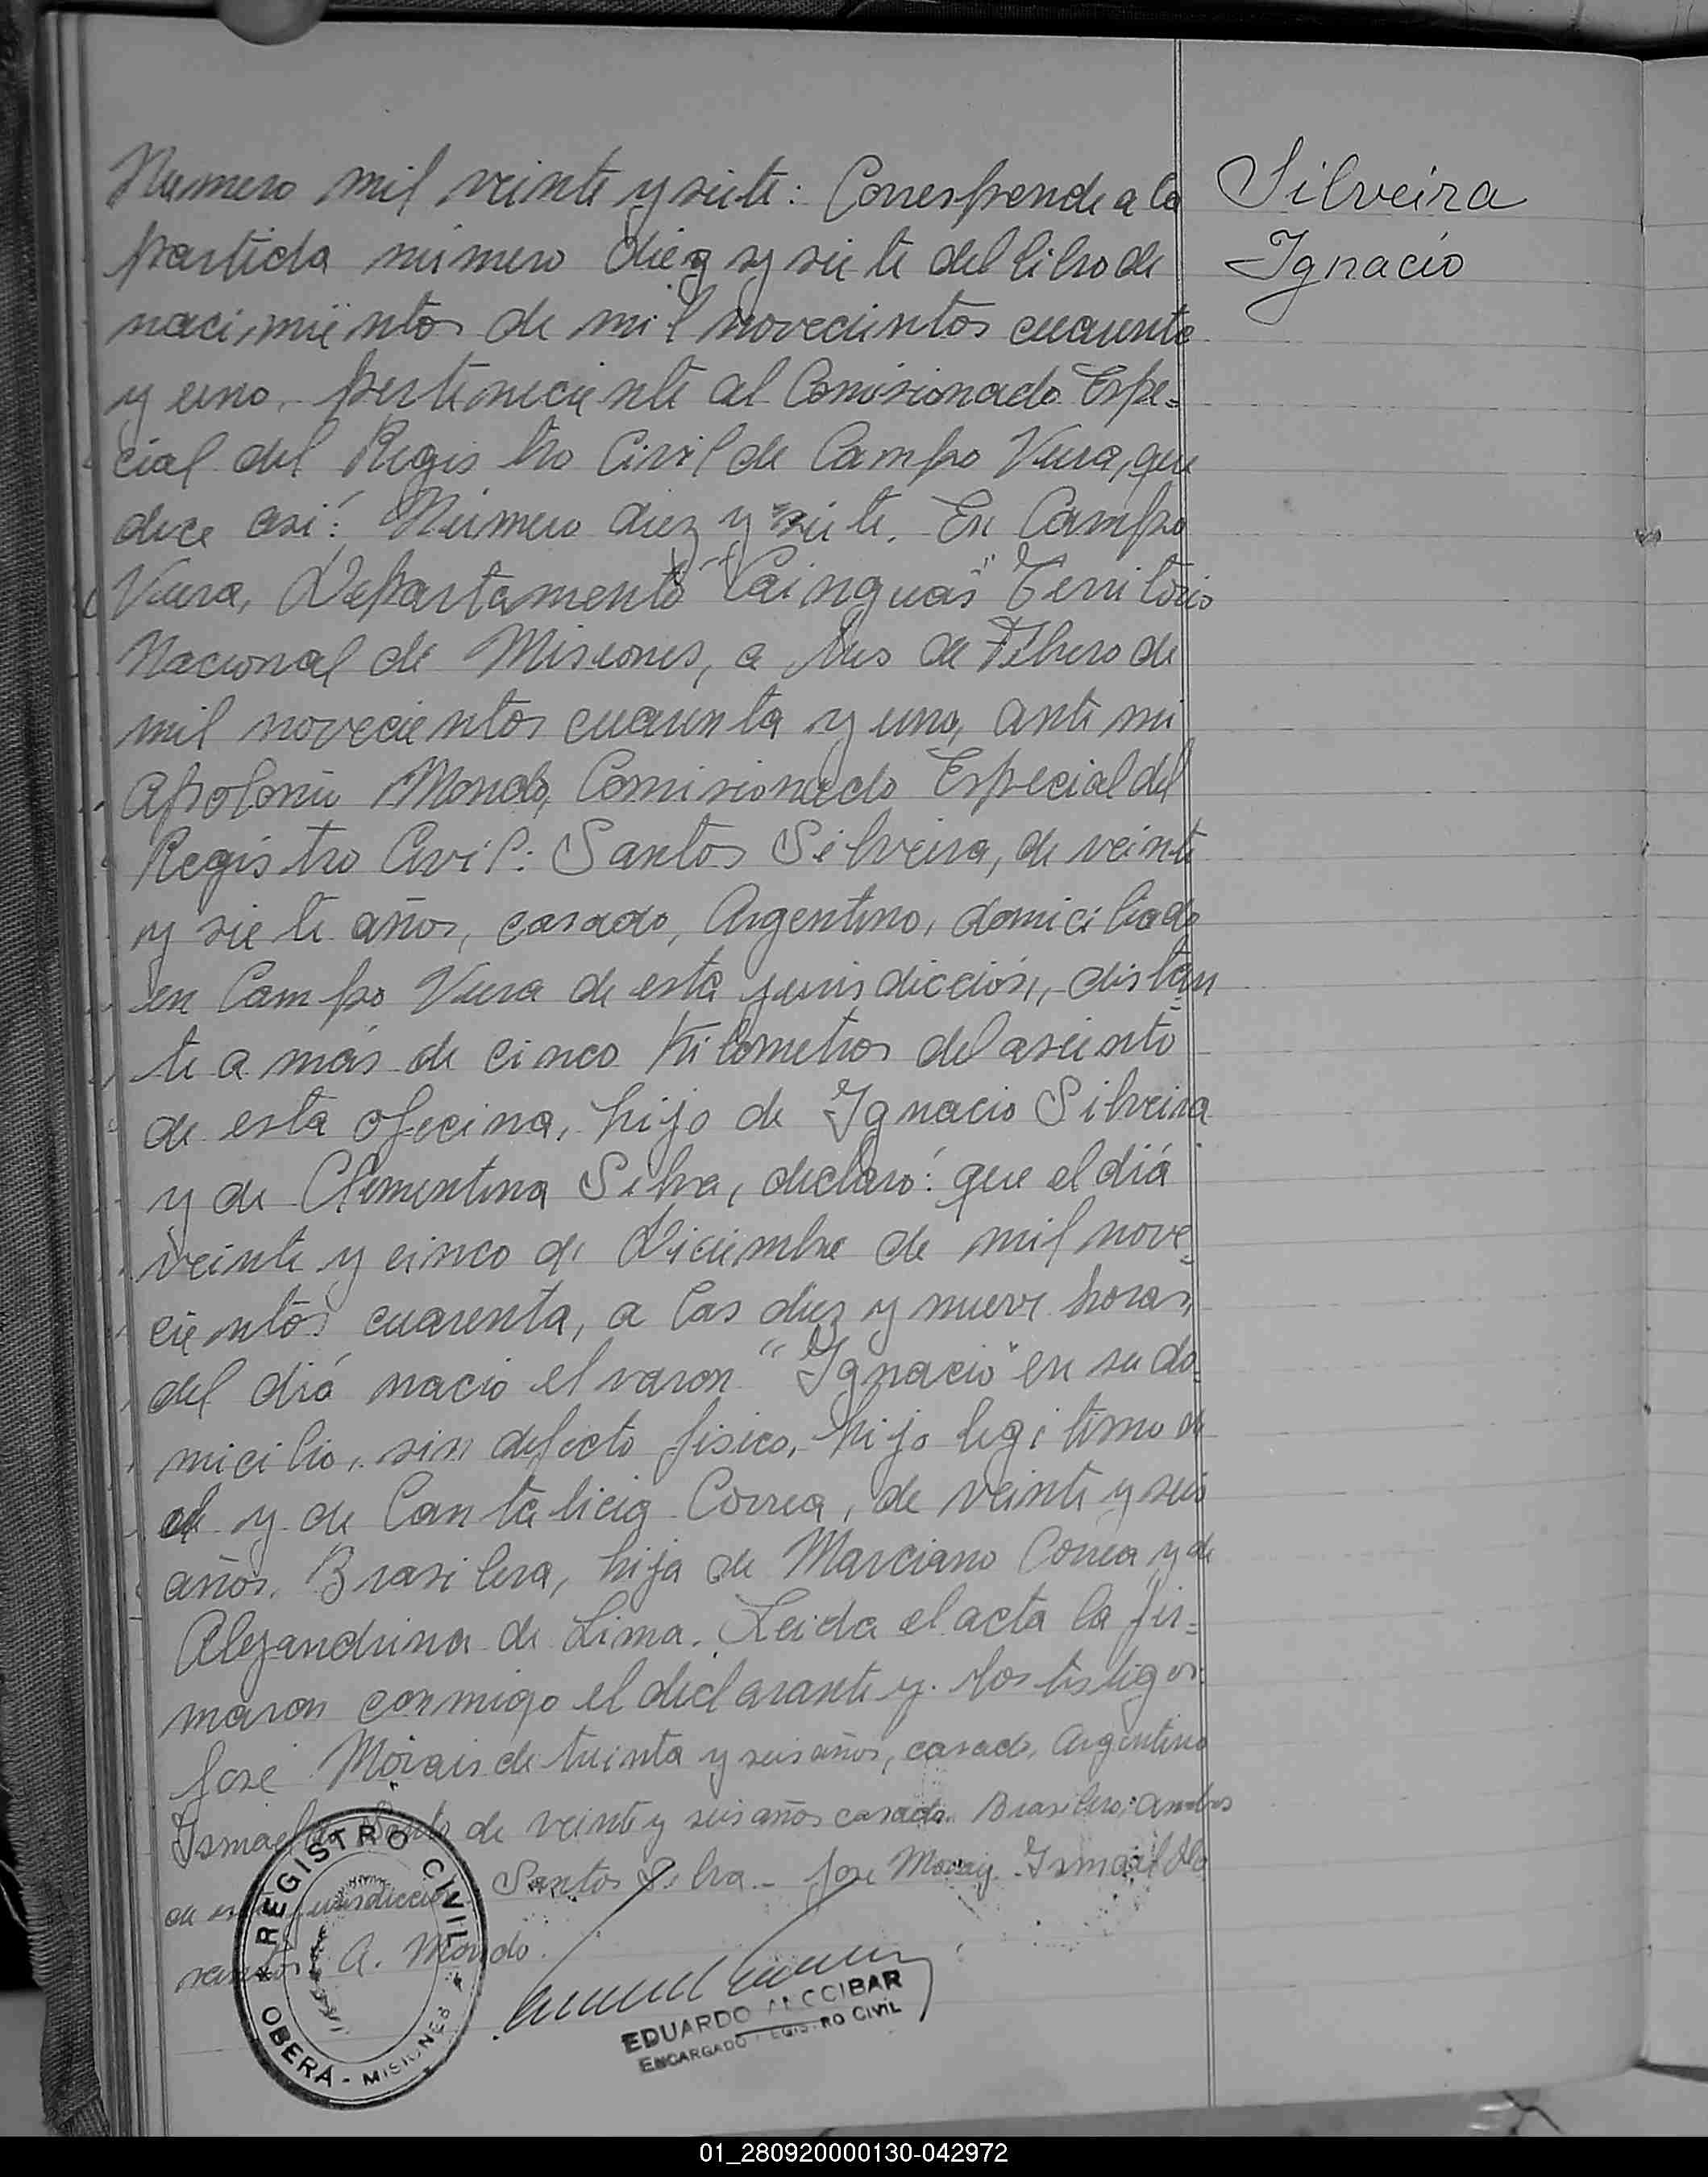 Numero mil veinte y siete: Corresponde a la
partida número diez y siete del libro de
nacimientos de mil novecientos cuarenta
y uno, perteneciente al Comisionado Espe=
cial del Registro Civil de Campo Viera, que
dice así: Número diez y siete. En Campo
Viera, Departamento "Cainguas" Territorio
Nacional de Misiones, a tres de Febrero de
mil novecientos cuarenta y uno, ante mi
Apolonio Mondo, Comisionado Especial del
Registro Civil: Santos Silveira, de veinte
y siete años, casado, Argentino, domiciliado
en Campo Viera de esta jurisdicción, distan
te a más de cinco Kilometros del asiento
de esta oficina, hijo de Ignacio Silveira
y de Clementina Silva, declaró: que el diá
veinte y cinco de Diciembre de mil nove=
cientos cuarenta, a las diez y nueve horas,
del diá nacio el varon "Ignacio" en su do=
micilio, sin defecto fisico, hijo legitimo de
el y de Cantalicia Correa, de veinte y seis
años, Brasilera, hija de Marciano Correa y de
Alejandrina de Lima. Leida el acta la fir=
maron conmigo el declarante y los testigos:
José Morais de treinta y seis años, casado, Argentino
Ismael de veinte y seis años casado Brasilero: ambos
de esta jurisdicción Santos Silva - Jose Moraiz - Ismael
A. Mondo.
Silveira
Ignacio
REGISTRO CIVIL
OBERA - MISIONES
EDUARDO ALCCIBAR
ENCARGADO REGISTRO CIVIL
01_280920000130-042972